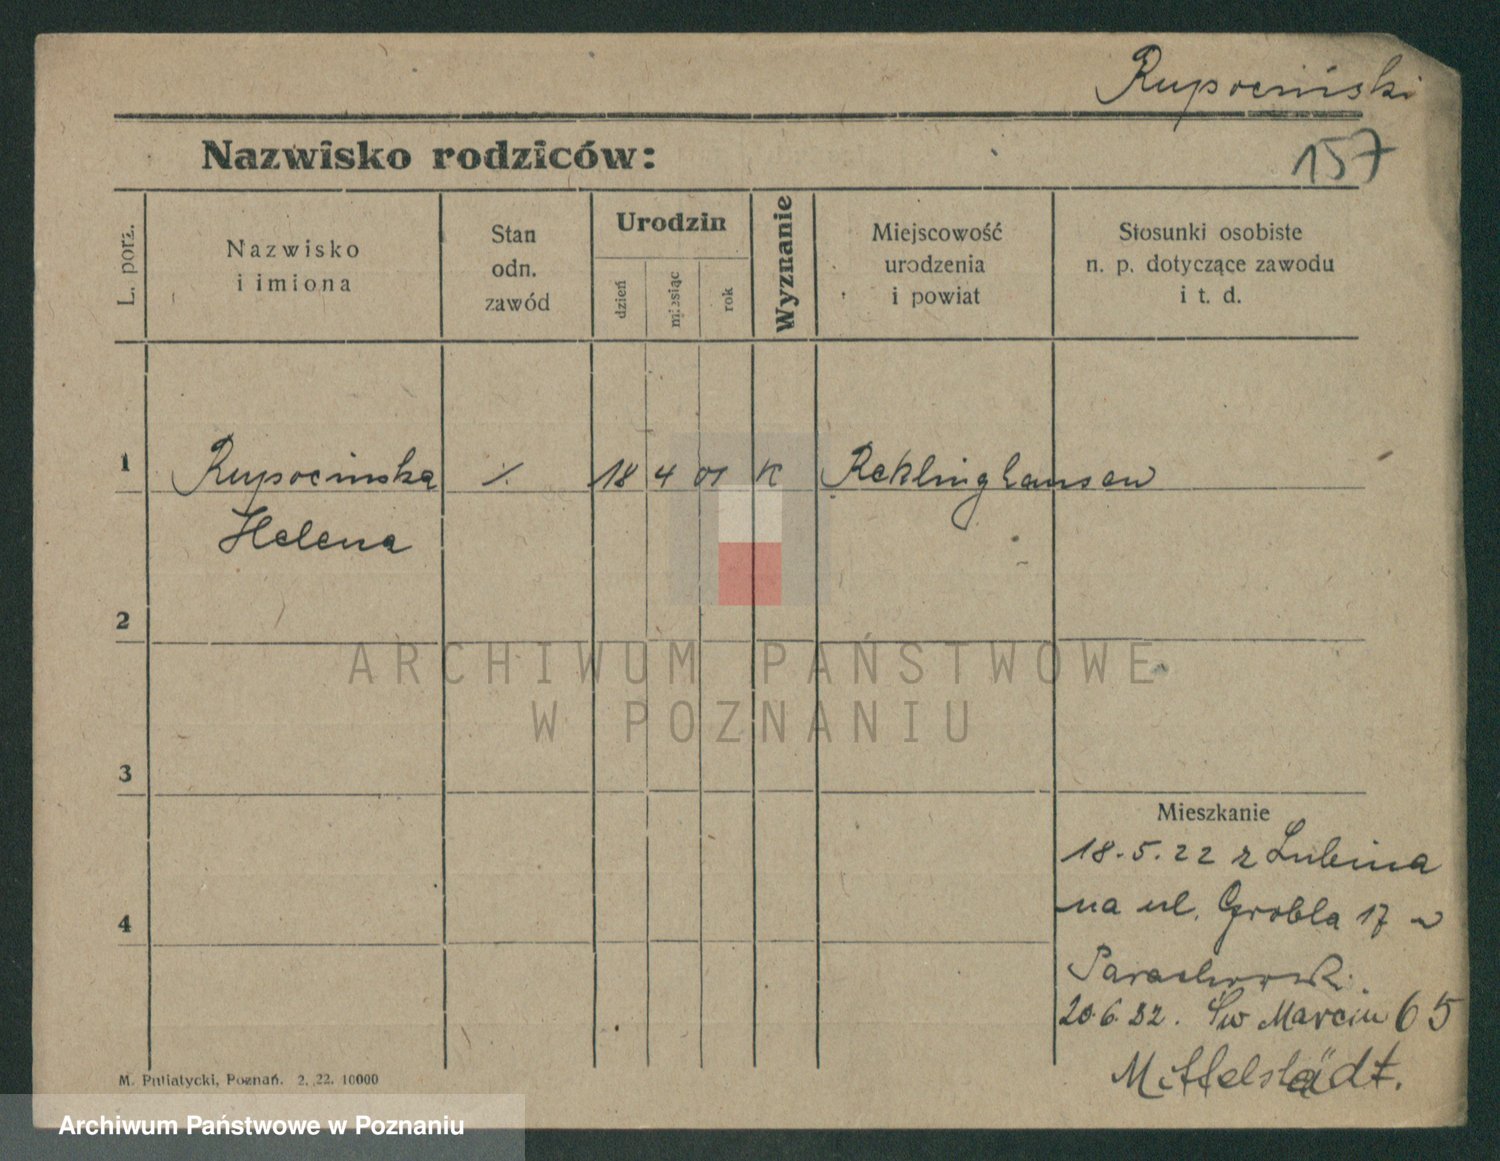 Rupociński
157
Nazwisko rodziców:
L. porz.
Nazwisko
i imiona
Stan
odn.
zawód
Urodzin
dzień
miesiąc
rok
Wyznanie
Miejscowość
urodzenia
i powiat
Stosunki osobiste
n. p. dotyczące zawodu
i t. d.
1 Rupocinska ./. 18 4 01 K Reklinghausen
Helena
2
ARCHIWUM PAŃSTWOWE
W POZNANIU
3
Mieszkanie
18.5.22 z Lubina
4
na ul. Grobla 17 w
20.6.22. Św Marcin 65
Mittelstädt.
M. Putiatycki, Poznań. 2. 22. 10000
Archiwum Państwowe w Poznaniu